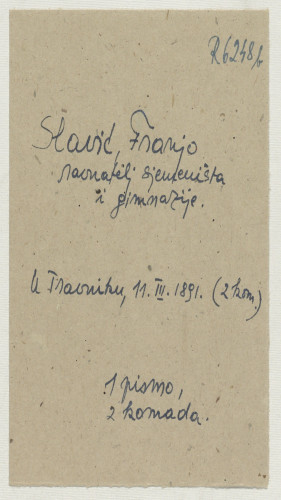 R6248/b
Slavić, Franjo
ravnatelj sjemeništa
i gimnazije.
U Travniku, 11. III. 1891. (2 kom.)
1 pismo,
2 komada.